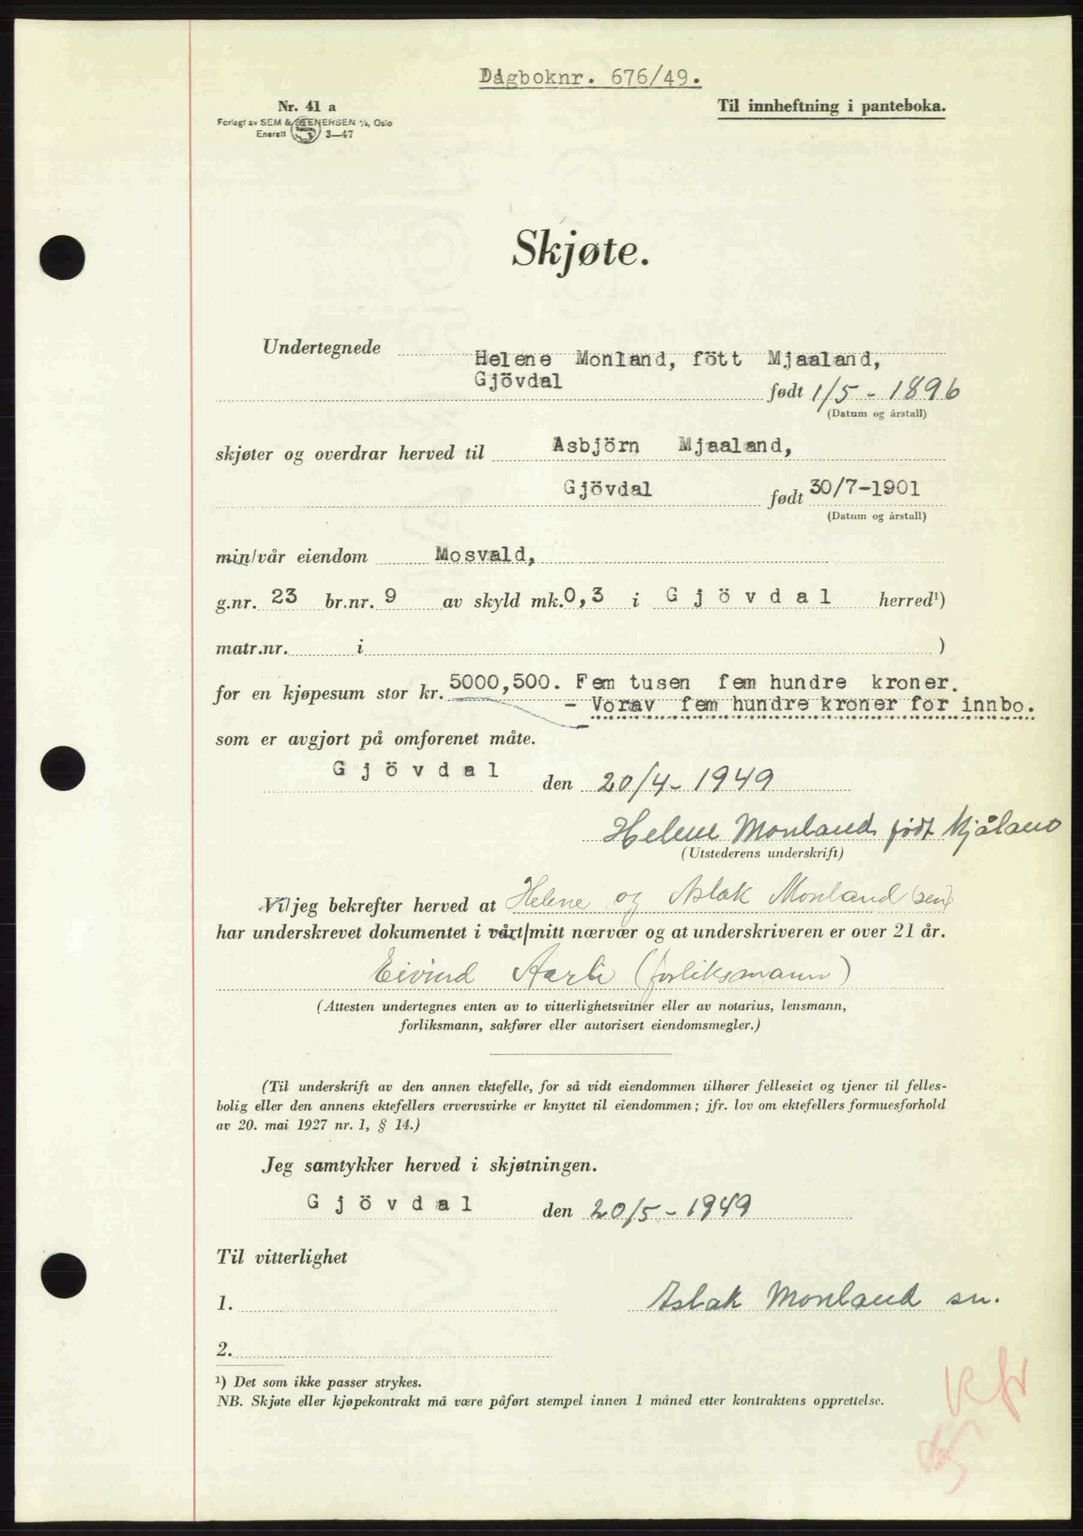 Dagboknr. 676/49.
Nr. 41 a
Forlagt av SEM & STENERSEN A/S, Oslo
Enerett 3—47
Til innheftning i panteboka.
Skjøte.
Undertegnede Helene Monland, fött Mjaaland,
Gjövdal født 1/5 - 1896
(Datum og årstall)
skjøter og overdrar herved til Asbjörn Mjaaland,
Gjövdal født 30/7-1901
(Datum og årstall)
min/vår eiendom Mosvald,
g.nr. 23 br.nr. 9 av skyld mk. 0,3 i Gjövdal herred¹)
matr.nr. i )
for en kjøpesum stor kr. 5000,500. Fem tusen fem hundre kroner.
- Vorav fem hundre kroner for innbo.
som er avgjort på omforenet måte.
Gjövdal den 20/4- 1949
Helene Monland født Mjåland
(Utstederens underskrift)
Vi/jeg bekrefter herved at Helene og Aslak Monland (sen)
har underskrevet dokumentet i vårt/mitt nærvær og at underskriveren er over 21 år.
Eivind Aarli (forliksmann)
(Attesten undertegnes enten av to vitterlighetsvitner eller av notarius, lensmann,
forliksmann, sakfører eller autorisert eiendomsmegler.)
(Til underskrift av den annen ektefelle, for så vidt eiendommen tilhører felleseiet og tjener til felles-
bolig eller den annens ektefellers ervervsvirke er knyttet til eiendommen; jfr. lov om ektefellers formuesforhold
av 20. mai 1927 nr. 1, § 14.)
Jeg samtykker herved i skjøtningen.
Gjövdal den 20/5 - 1949
Til vitterlighet
1. Aslak Monland sn.
2.
¹) Det som ikke passer strykes.
NB. Skjøte eller kjøpekontrakt må være påført stempel innen 1 måned etter kontraktens opprettelse.
Kfr